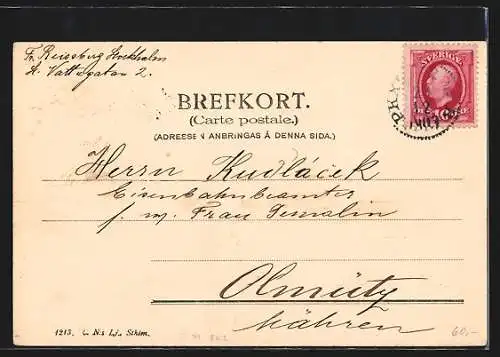 Fr. Reissberg Stockholm
St. Vattugatan 2.
SVERIGE
BREFKORT.
(Carte postale.)
(ADRESSEN ANBRINGAS Å DENNA SIDA.)
Herrn Kudláček
Eisenbahnbeamter
f. m. Frau Gemalin
Olmütz
Mähren
1213. C. N:s Lj., Sthlm.
60,-